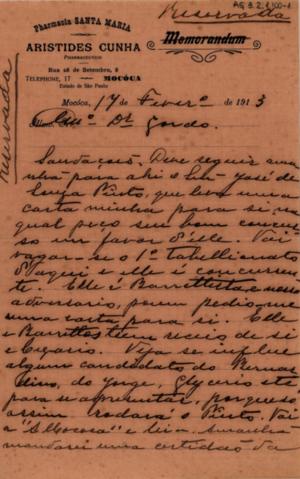 Reservada
AG 3.2.400-1
Pharmacia SANTA MARIA
ARISTIDES CUNHA
PHARMACEUTICO
Rua 28 de Setembro, 8
TELEPHONE, 17 MOCÓCA
Estado de São Paulo
Memorandum
Reservada
Mocóca, 17 de Fever.º de 1913
Illmo. Dr. Gordo.
Saudações. Deve seguir ama
nhã para ahi o Snr. José de
Souza Pinto, que leva uma
carta minha para si, na
qual peço seu bom concur
so um favor d'elle. Vai
vagar-se o 1º tabellionato
d'aqui e elle é concurren
te. Elle é Barrettista e nosso
adversario, porem pedio-me
uma carta para si. Elle
e Barrettos têm receio de si
e Cezario. Veja se influe
algum candidato do Bernar
dino, do Jorge, Glycerio etc
para se apresentar, porque só
assim rodará o Pinto. Vai
a "Mococa" e leia. Amanhã
mandarei uma certidão da